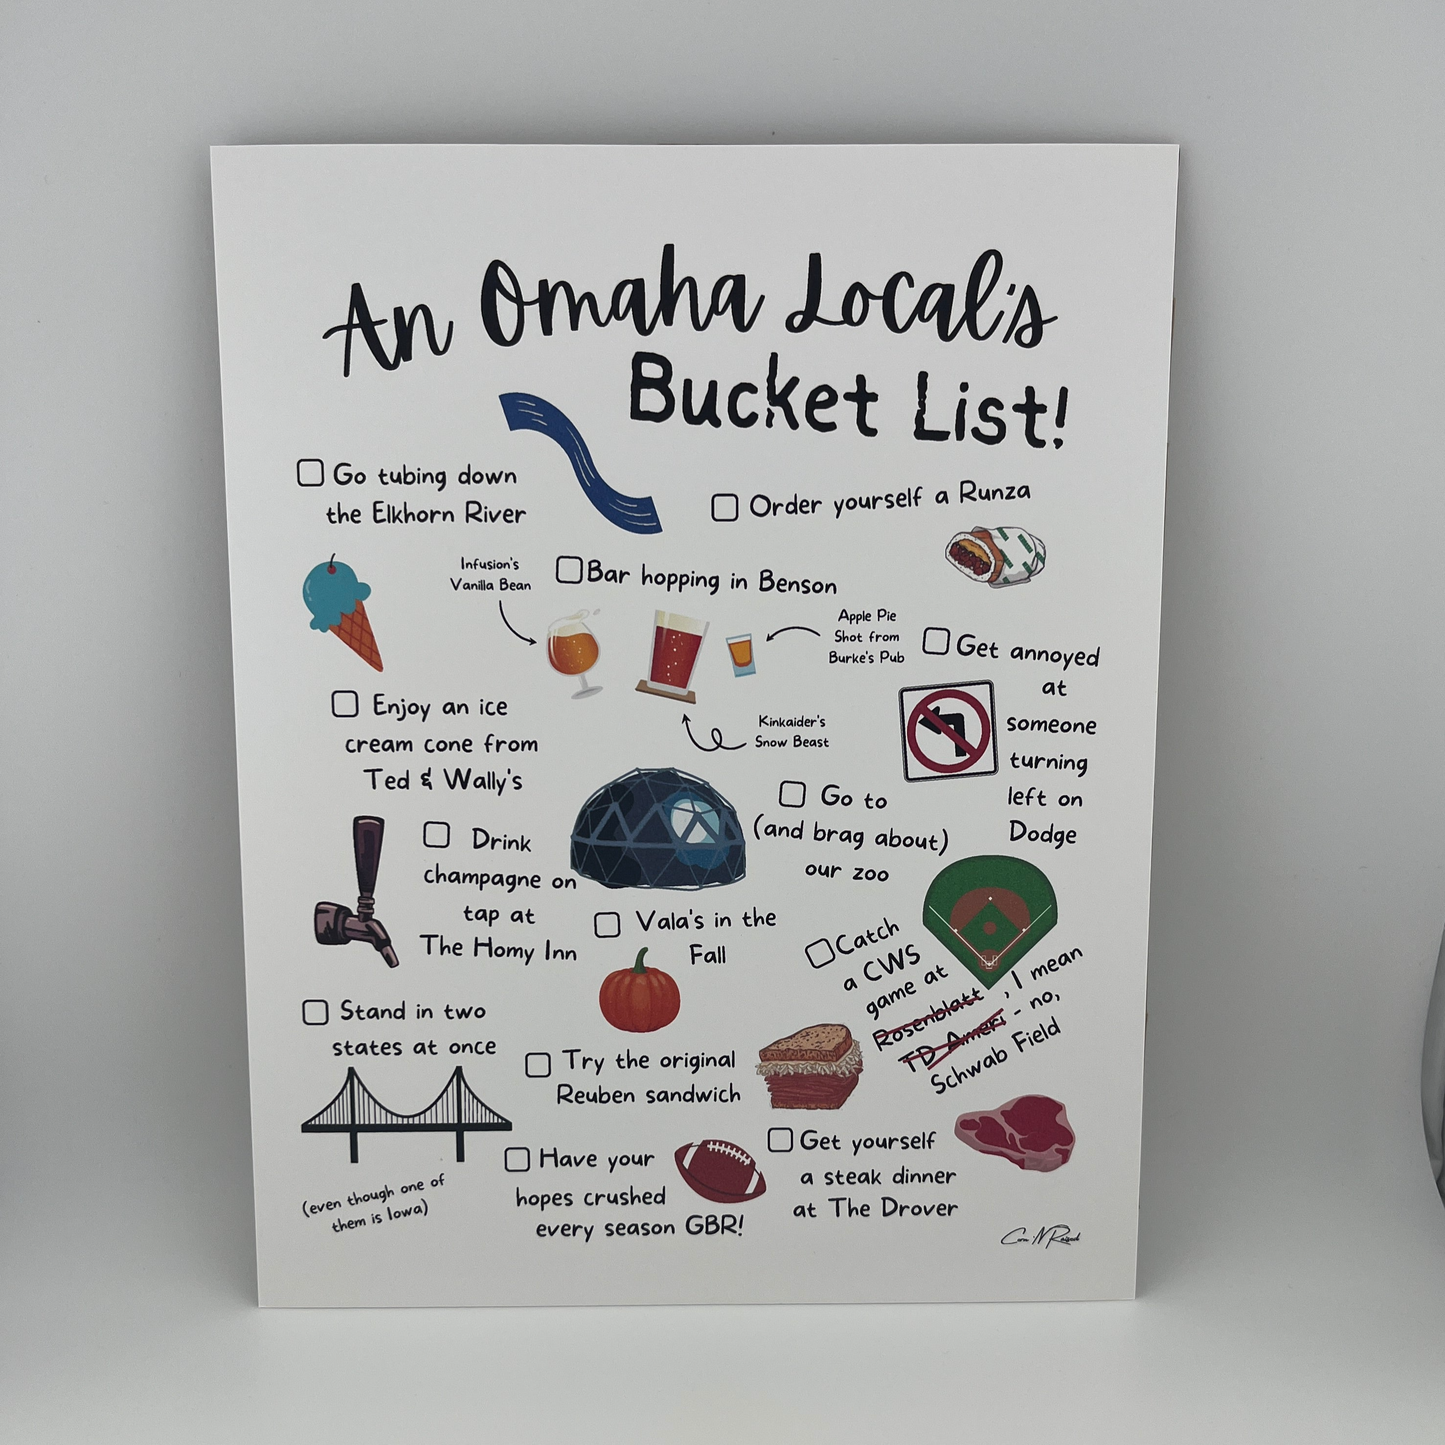 An Omaha Local's
Bucket List!
Go tubing down
the Elkhorn River
Order yourself a Runza
Infusion's
Vanilla Bean
Bar hopping in Benson
Apple Pie
Shot from
Burke's Pub
Kinkaider's
Snow Beast
Get annoyed
at
someone
turning
left on
Dodge
Enjoy an ice
cream cone from
Ted & Wally's
Go to
(and brag about)
our zoo
Drink
champagne on
tap at
The Homy Inn
Vala's in the
Fall
Catch
a CWS
game at
Rosenblatt, I mean
TD Ameri - no,
Schwab Field
Stand in two
states at once
(even though one of
them is Iowa)
Try the original
Reuben sandwich
Have your
hopes crushed
every season GBR!
Get yourself
a steak dinner
at The Drover